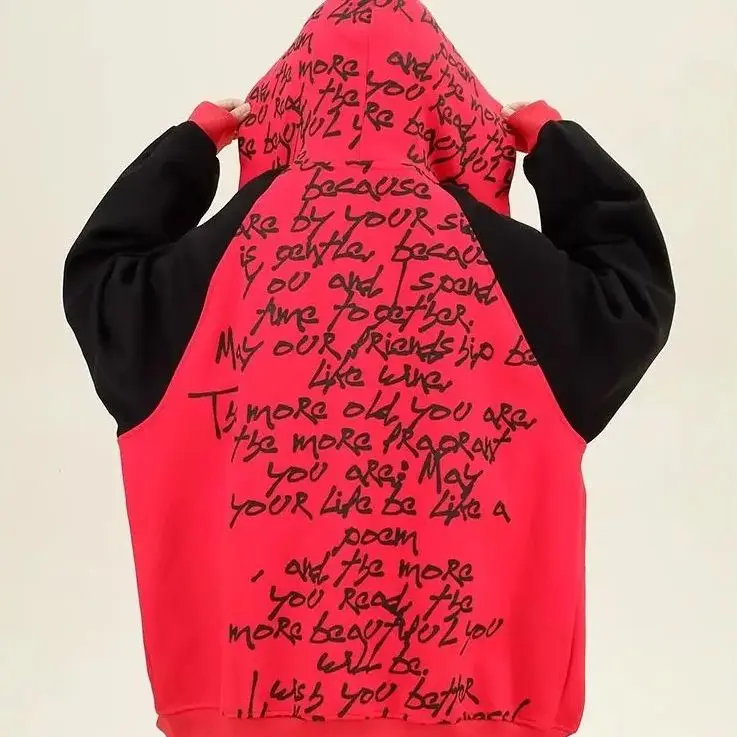 Be Life
poem
and the more
and the more
you Read, the
you
Re beautyful you
re beautyful
because
are by your si
is gentle, because
you and I spend
time together.
May our friendship be
like wine,
Th more old you are,
the more fragrant
you are; May
your life be like a
poem
, and the more
you Read, the
more beautyful you
will be.
I wish you better